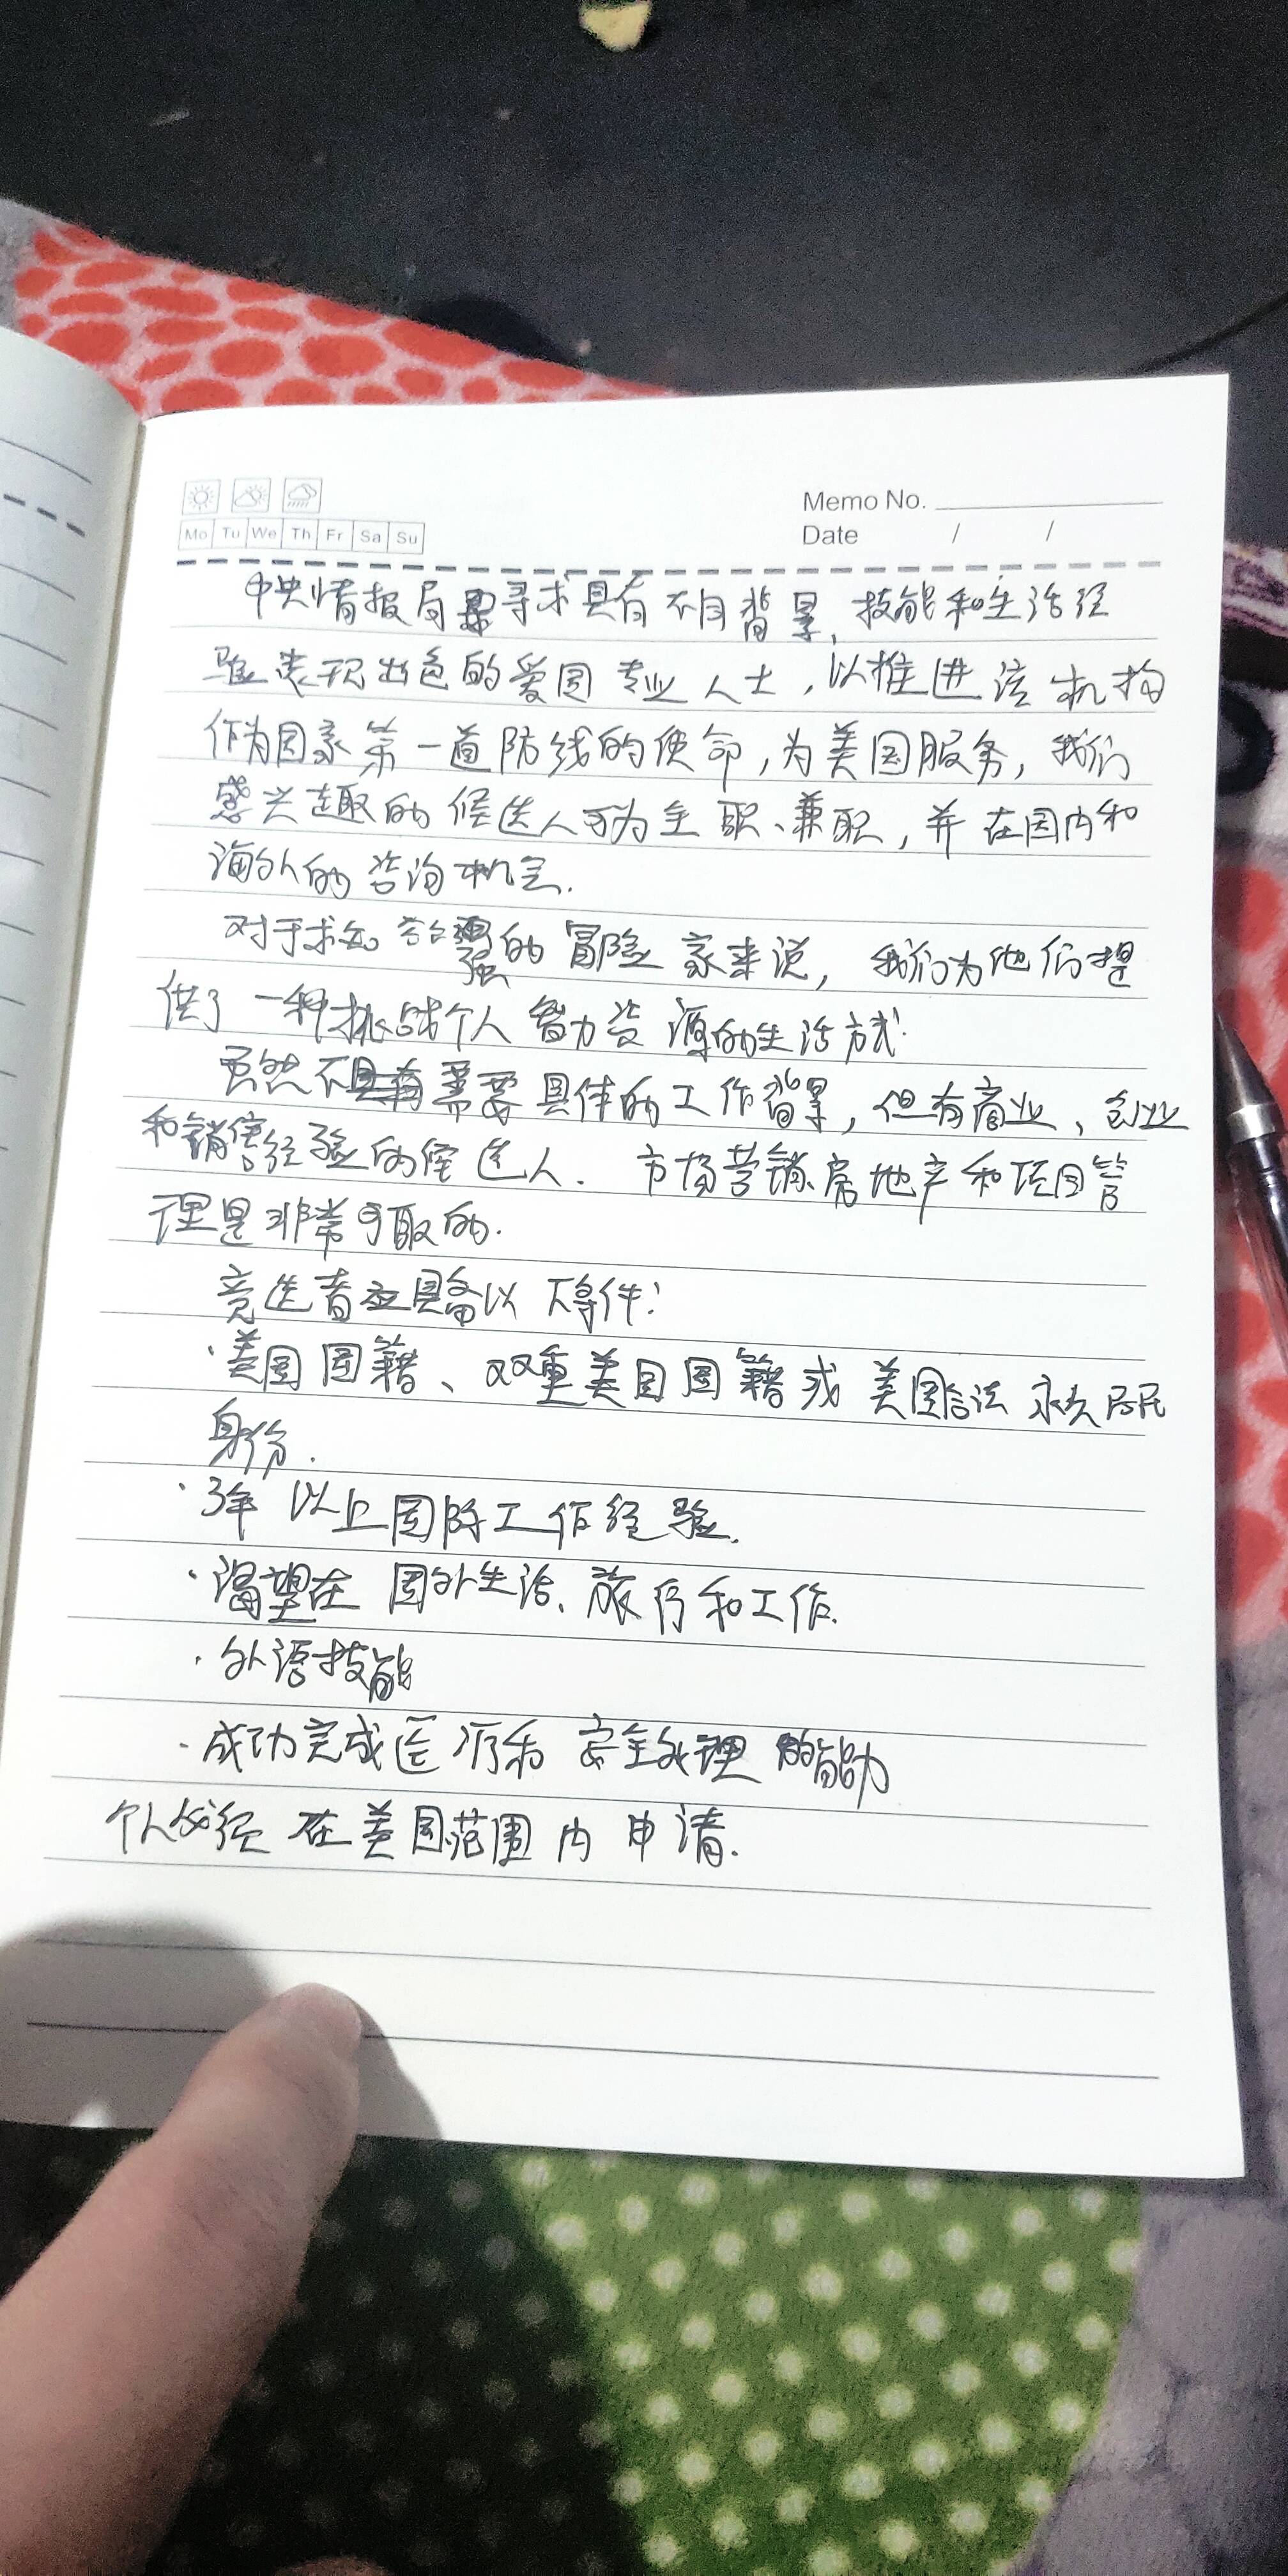 Memo No.
Mo Tu We Th Fr Sa Su
Date / /
中央情报局寻求具有不同背景、技能和生活经
验表现出色的爱国专业人士，以推进该机构
作为国家第一道防线的使命，为美国服务，我们
感兴趣的候选人可为全职、兼职，并在国内和
海外的咨询机会.
对于求知欲强的冒险家来说，我们为他们提
供了一种挑战个人智力资源的生活方式.
虽然不需要具体的工作背景，但有商业、创业
和销售经验的候选人. 市场营销、房地产和项目管
理是非常可取的.
竞选者应具备以下条件：
·美国国籍、双重美国国籍或美国合法永久居民
身份.
·3年以上国际工作经验.
·渴望在国外生活、旅行和工作.
·外语技能
·成功完成医疗和安全处理的能力
个人必须在美国范围内申请.